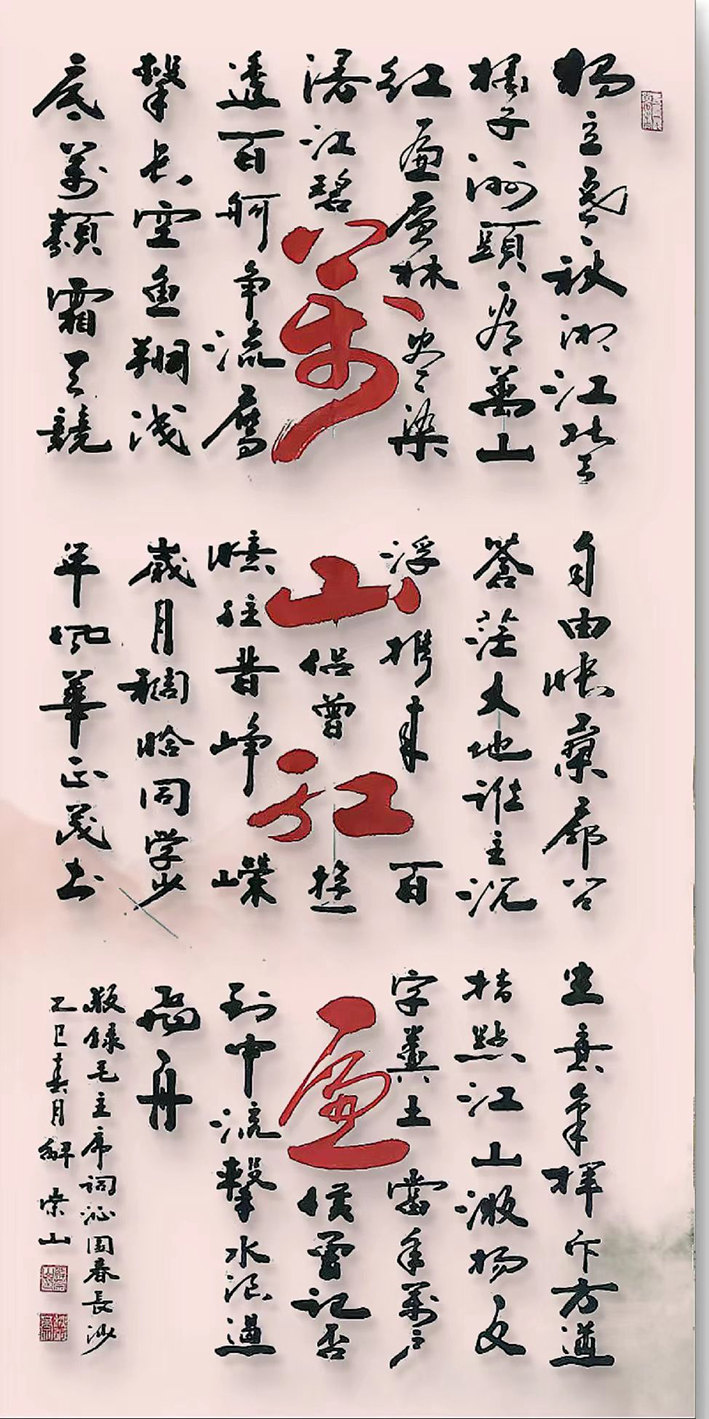 独立寒秋湘江北去
橘子洲頭看萬山
红遍层林尽染
漫江碧
透百舸争流鹰
擊长空鱼翔浅
底萬類霜天競
自由悵寥廓问
蒼茫大地谁主沉
浮携来百
侣曾遊
憶往昔峥嵘
歲月稠恰同学少
年风華正茂书
生意氣揮斥方遒
指點江山激扬文
字糞土當年萬户
侯曾记否
到中流擊水浪遏
飛舟
萬山红遍
敬録毛主席词沁园春長沙
乙巳春月解崇山